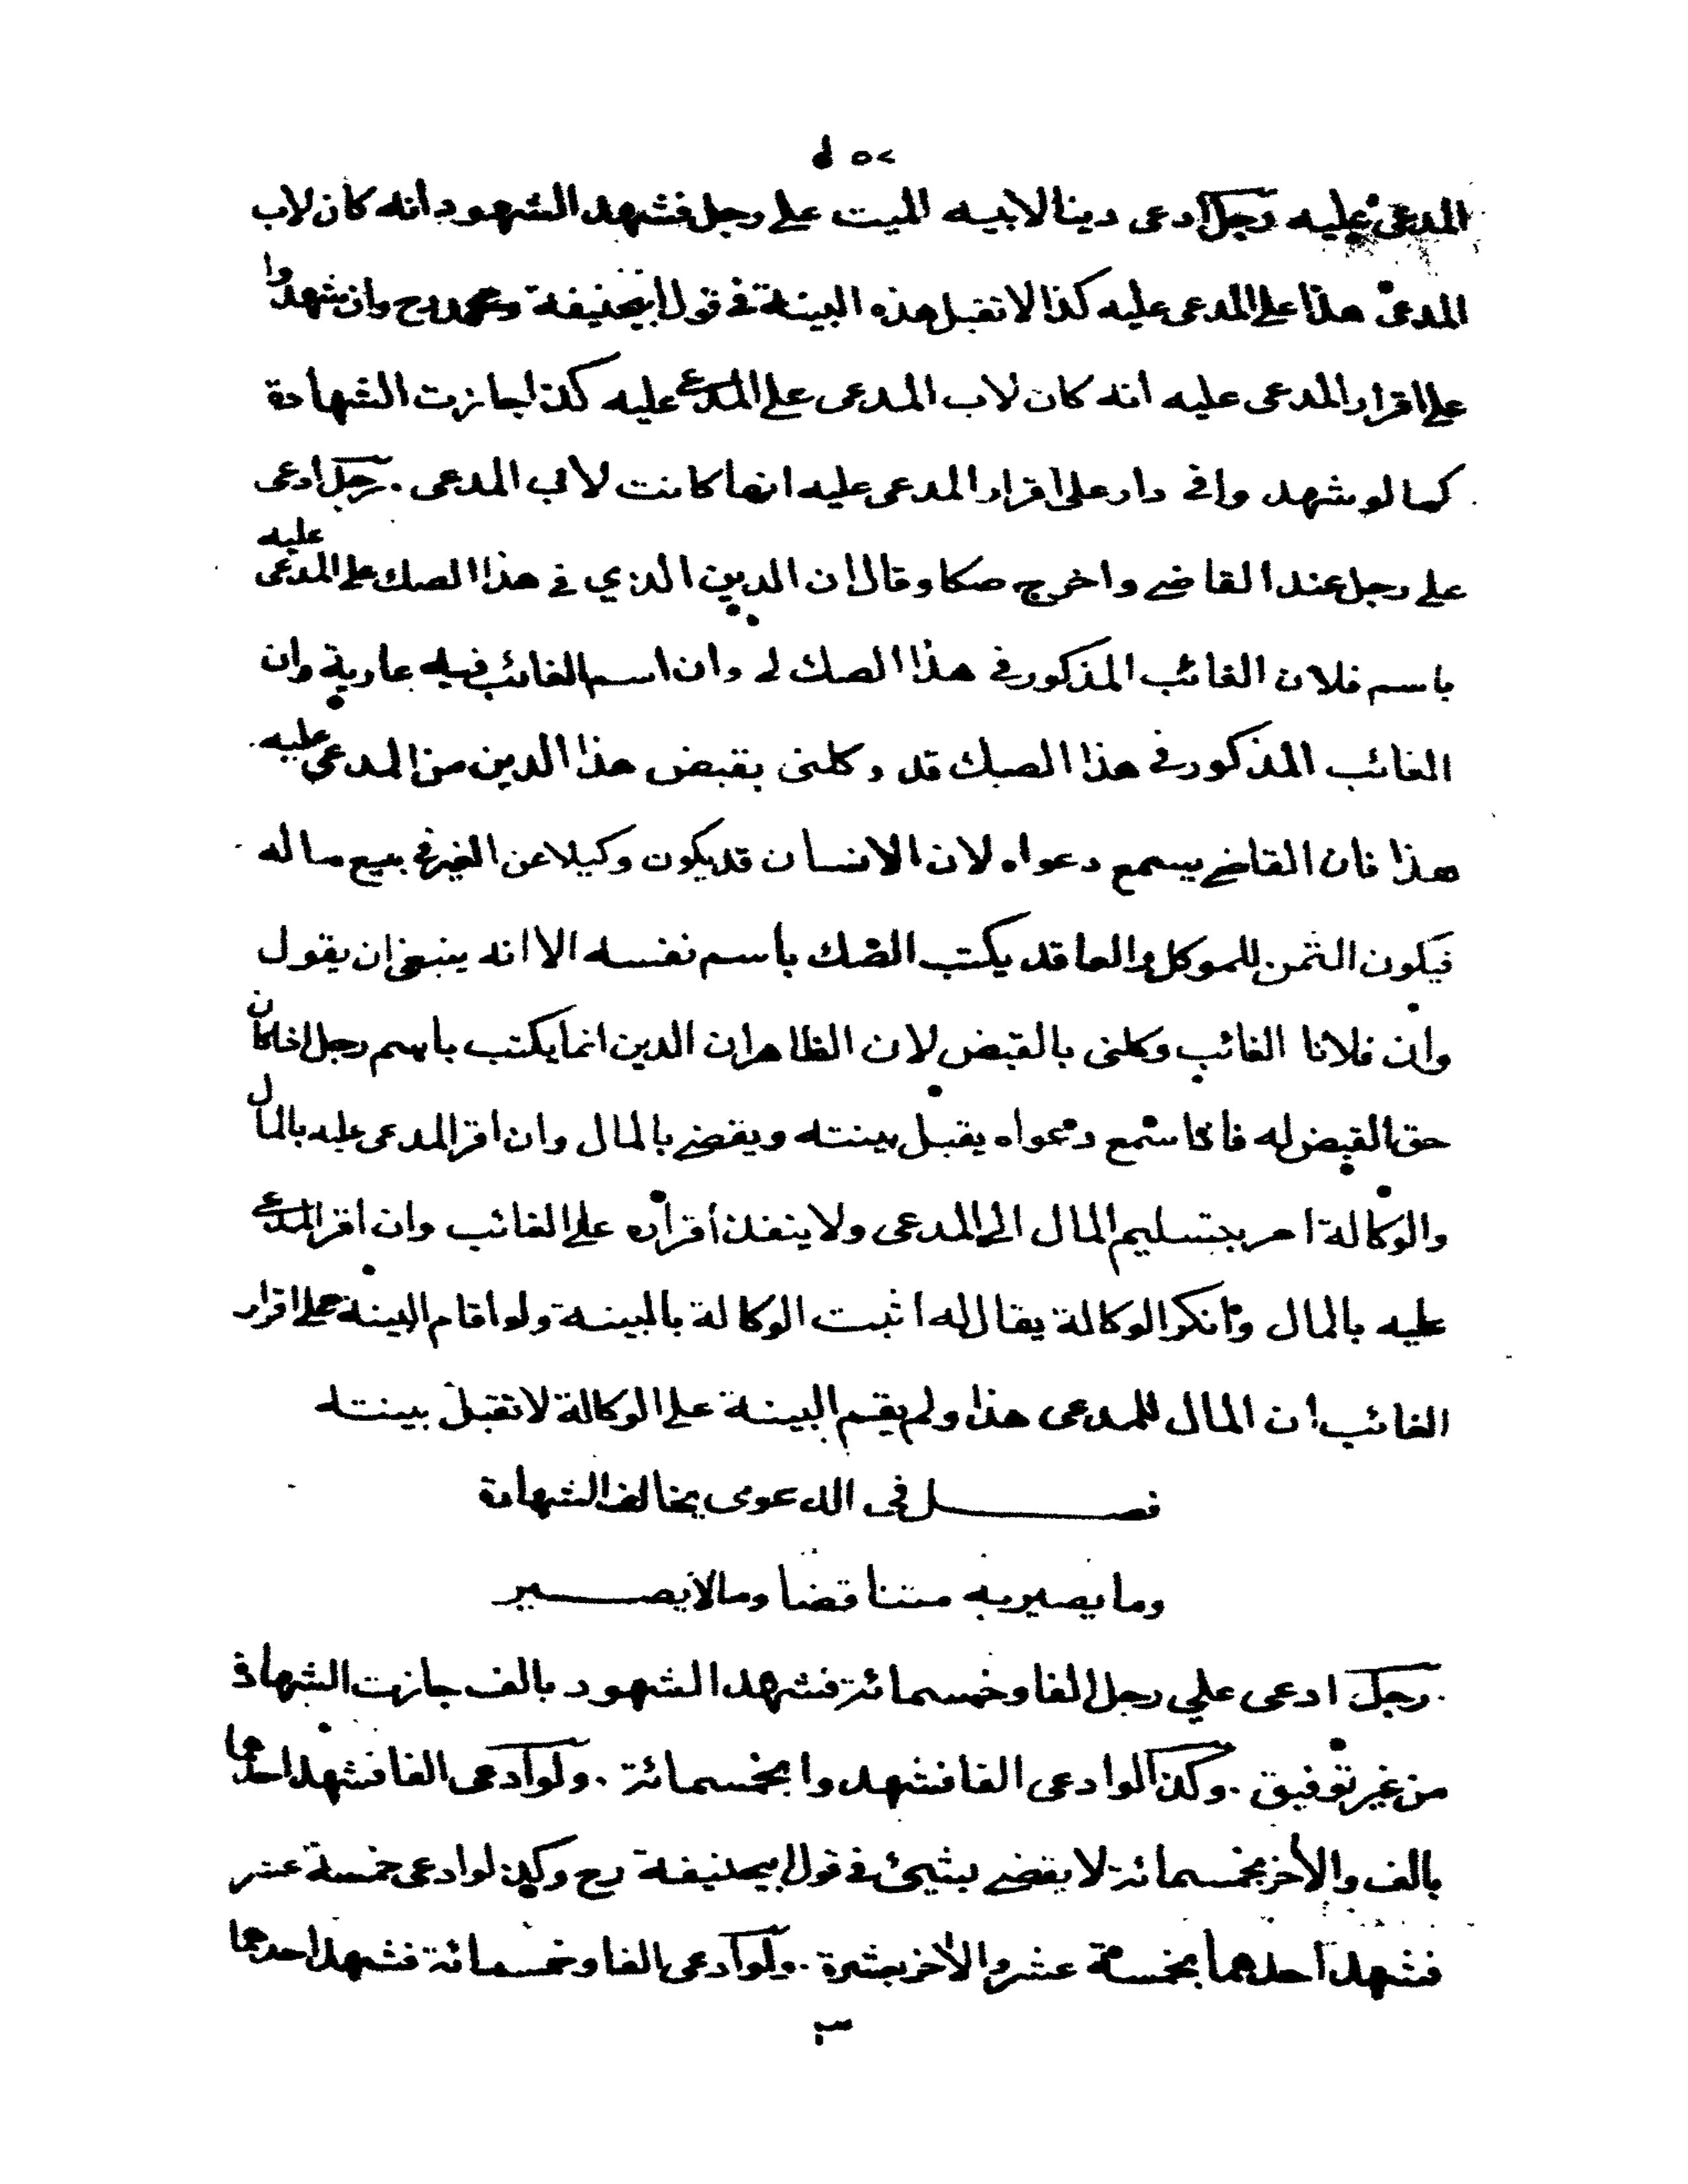 المدعى عليه رجل ادعى دينا لابيه الميت على رجل فشهد الشهود انه كان لاب
المدعى هذا على المدعى عليه كذا لا تقبل هذه البينة في قول ابيحنيفة ومحمد رح وان شهدوا
على اقرار المدعى عليه انه كان لاب المدعى على المدعى عليه كذا جازت الشهادة
كما لو شهد وافي دار على اقرار المدعى عليه انها كانت لاب المدعى . رجل ادعى
على رجل عند القاضي واخرج صكا وقال ان الدين الذي في هذا الصك على المدعى عليه
باسم فلان الغائب المذكور في هذا الصك لي وان اسم الغائب فيه عارية وان
الغائب المذكور في هذا الصك قد وكلنى بقبض هذا الدين من المدعى عليه
هذا فان القاضي يسمع دعواه لان الانسان قد يكون وكيلا عن الغير في بيع ماله
فيكون الثمن للموكل والعاقد يكتب الصك باسم نفسه الا انه ينبغي ان يقول
وان فلانا الغائب وكلنى بالقبض لان الظاهر ان الدين انما يكتب باسم رجل اذا كان
حق القبض له فاذا سمع دعواه يقبل بينته ويقضي بالمال وان اقر المدعى عليه بالمال
والوكالة امر بتسليم المال الى المدعى ولا ينفذ اقراره على الغائب وان اقر المدعى
عليه بالمال وانكر الوكالة يقال له اثبت الوكالة بالبينة ولو اقام البينة على اقرار
الغائب ان المال للمدعى هذا ولم يقم البينة على الوكالة لا تقبل بينته
فصل في الدعوى يخالف الشهادة
وما يصير به متناقضا وما لا يصير
رجل ادعى علي رجل الفا وخمسمائة فشهد الشهود بالف جازت الشهادة
من غير توفيق . وكذا لو ادعى الفا فشهدوا بخمسمائة . ولو ادعى الفا فشهد احدهما
بالف والأخر بخمسمائة لا يقضي بشيئ في قول ابيحنيفة رح وكذا لو ادعى خمسة عشر
فشهد احدهما بخمسة عشر والأخر بعشرة . ولو ادعى الفا وخمسمائة فشهد احدهما